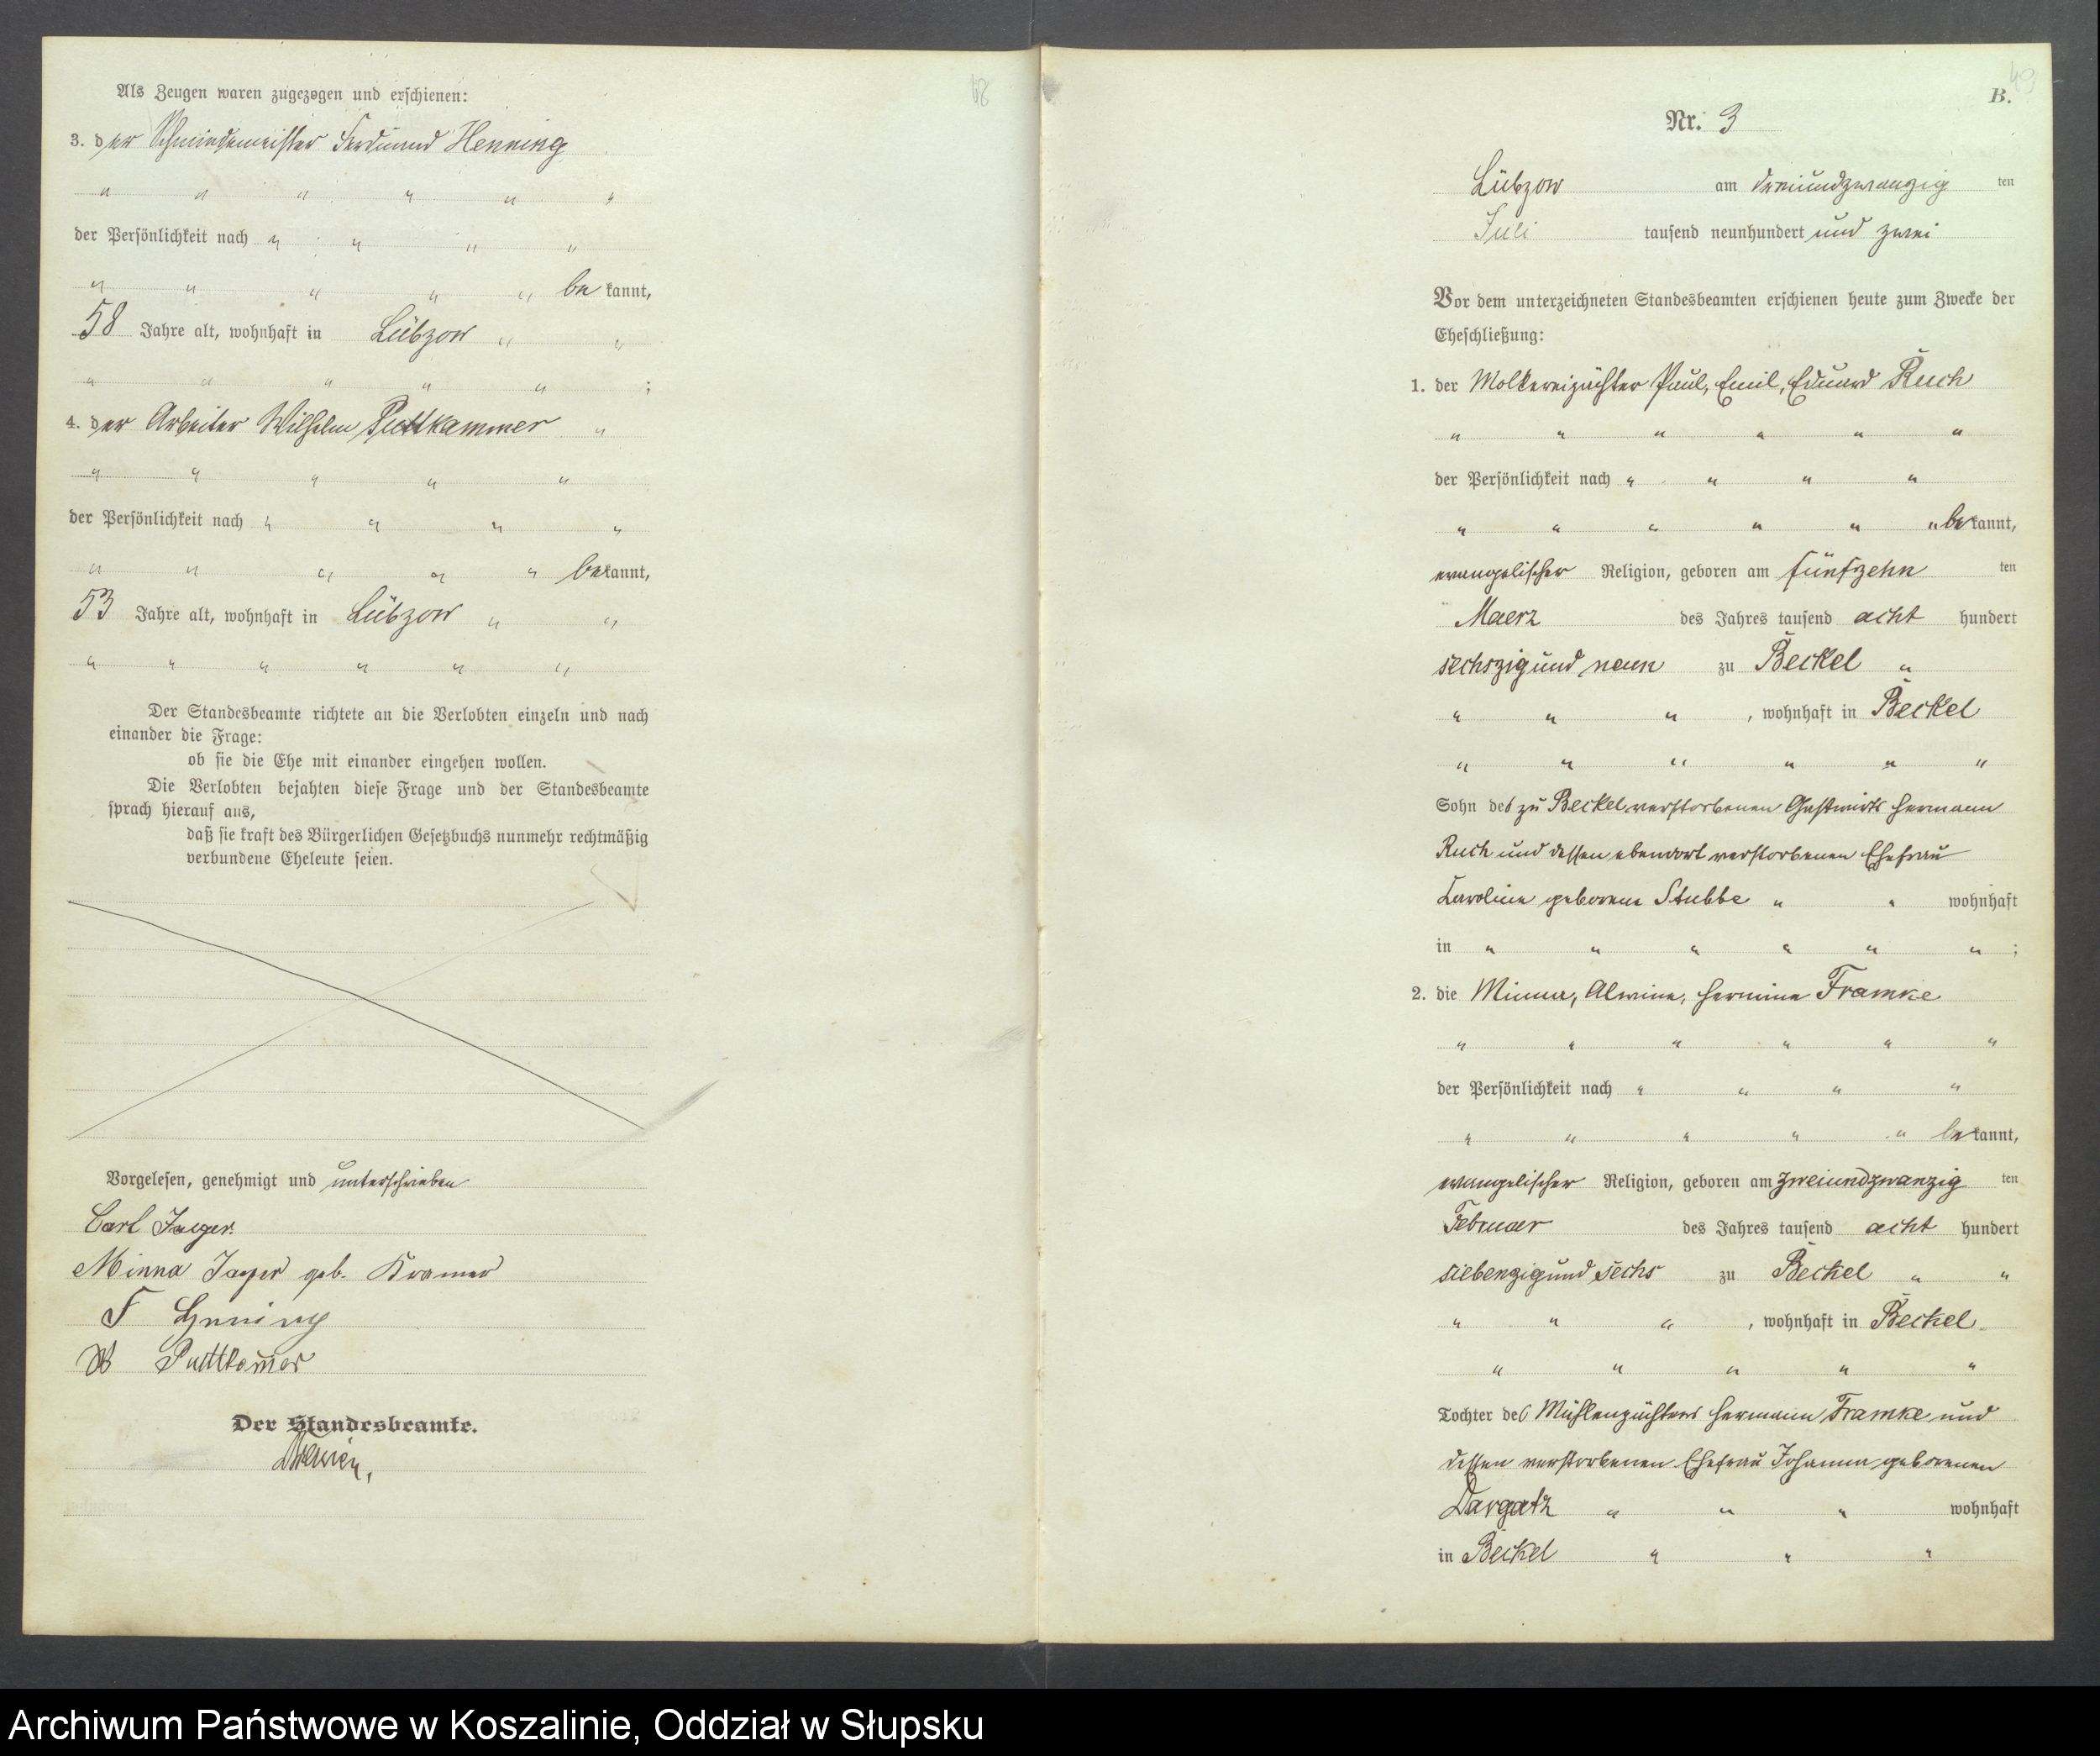 Als Zeugen waren zugezogen und erschienen:
3. der Schmiedemeister Ferdinand Henning
" " " " " "
der Persönlichkeit nach " " " "
" " " " " be kannt,
58 Jahre alt, wohnhaft in Lübzow " "
" " " " " ;
4. der Arbeiter Wilhelm Puttkammer "
" " " " "
der Persönlichkeit nach " " " "
" " " " " bekannt,
53 Jahre alt, wohnhaft in Lübzow " "
" " " " " "
Der Standesbeamte richtete an die Verlobten einzeln und nach
einander die Frage:
ob sie die Ehe mit einander eingehen wollen.
Die Verlobten bejahten diese Frage und der Standesbeamte
sprach hierauf aus,
daß sie kraft des Bürgerlichen Gesetzbuchs nunmehr rechtmäßig
verbundene Eheleute seien.
Vorgelesen, genehmigt und unterschrieben
Carl Jaeger.
Minna Jaeger geb. Kramer
F Henning
W Puttkam̄er
Der Standesbeamte.
48
49
B.
Nr. 3
Lübzow am dreiundzwanzig ten
Juli tausend neunhundert und zwei
Vor dem unterzeichneten Standesbeamten erschienen heute zum Zwecke der
Eheschließung:
1. der Molkereipächter Paul, Emil, Eduard Ruch
" " " " " "
der Persönlichkeit nach " " " "
" " " " " " bekannt,
evangelischer Religion, geboren am fünfzehn ten
Maerz des Jahres tausend acht hundert
sechszig und neun zu Beckel "
" " " , wohnhaft in Beckel
" " " " " "
Sohn des zu Beckel verstorbenen Gastwirts Hermann
Ruch und dessen ebendort verstorbenen Ehefrau
Karoline geborene Stubbe " " wohnhaft
in " " " " " " ;
2. die Minna, Alwine, Hermine Framke
" " " " " "
der Persönlichkeit nach " " " "
" " " " " bekannt,
evangelischer Religion, geboren am zweiundzwanzig ten
Februar des Jahres tausend acht hundert
siebenzig und sechs zu Beckel " "
" " " , wohnhaft in Beckel
" " " " "
Tochter des Mühlenpächters Hermann Framke und
dessen verstorbenen Ehefrau Johanna geborenen
Dargatz " " " wohnhaft
in Beckel " " "
Archiwum Państwowe w Koszalinie, Oddział w Słupsku